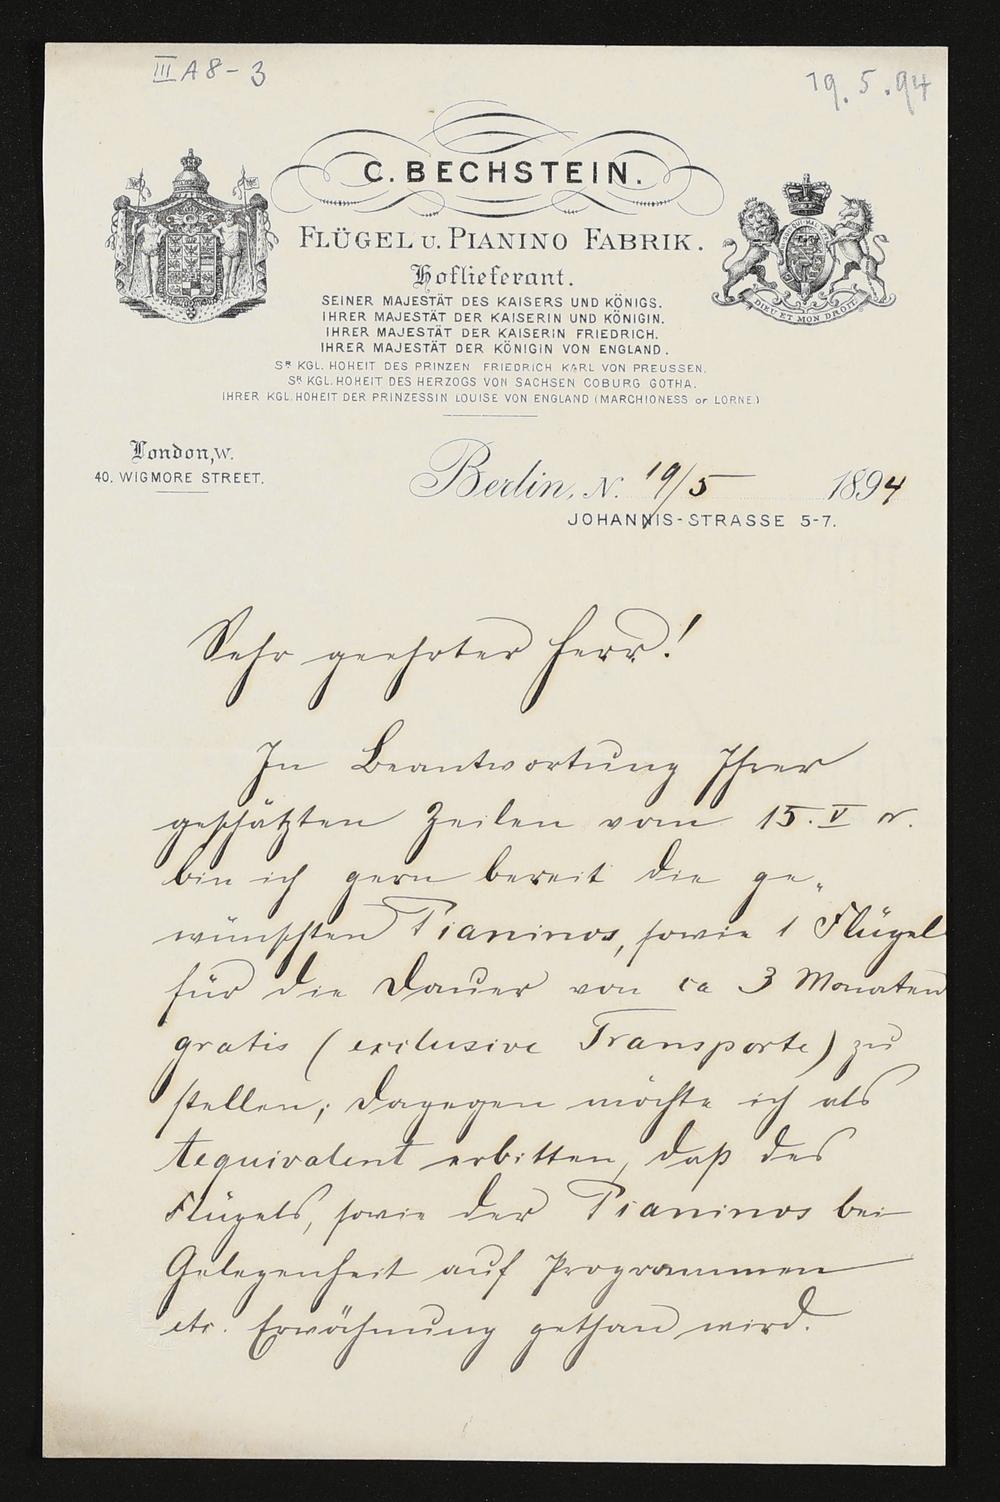 III A 8 - 3
19. 5. 94
C. BECHSTEIN.
FLÜGEL U. PIANINO FABRIK.
Hoflieferant.
SEINER MAJESTÄT DES KAISERS UND KÖNIGS.
IHRER MAJESTÄT DER KAISERIN UND KÖNIGIN.
IHRER MAJESTÄT DER KAISERIN FRIEDRICH.
IHRER MAJESTÄT DER KÖNIGIN VON ENGLAND.
SR KGL. HOHEIT DES PRINZEN FRIEDRICH KARL VON PREUSSEN.
SR KGL. HOHEIT DES HERZOGS VON SACHSEN COBURG GOTHA.
IHRER KGL. HOHEIT DER PRINZESSIN LOUISE VON ENGLAND (MARCHIONESS OF LORNE.)
DIEU ET MON DROIT
London, W.
40. WIGMORE STREET.
Berlin, N. 19/5 1894
JOHANNIS-STRASSE 5-7.
Sehr geehrter Herr!
In Beantwortung Ihrer
geschätzten Zeilen vom 15. V cr.
bin ich gern bereit die ge„
wünschten Pianinos, sowie 1 Flügel
für die Dauer von ca 3 Monaten
gratis (exclusive Transporte) zu
stellen; dagegen möchte ich als
Aequivalent erbitten, daß des
Flügels, sowie der Pianinos bei
Gelegenheit auf Programmen
etc. Erwähnung gethan wird.